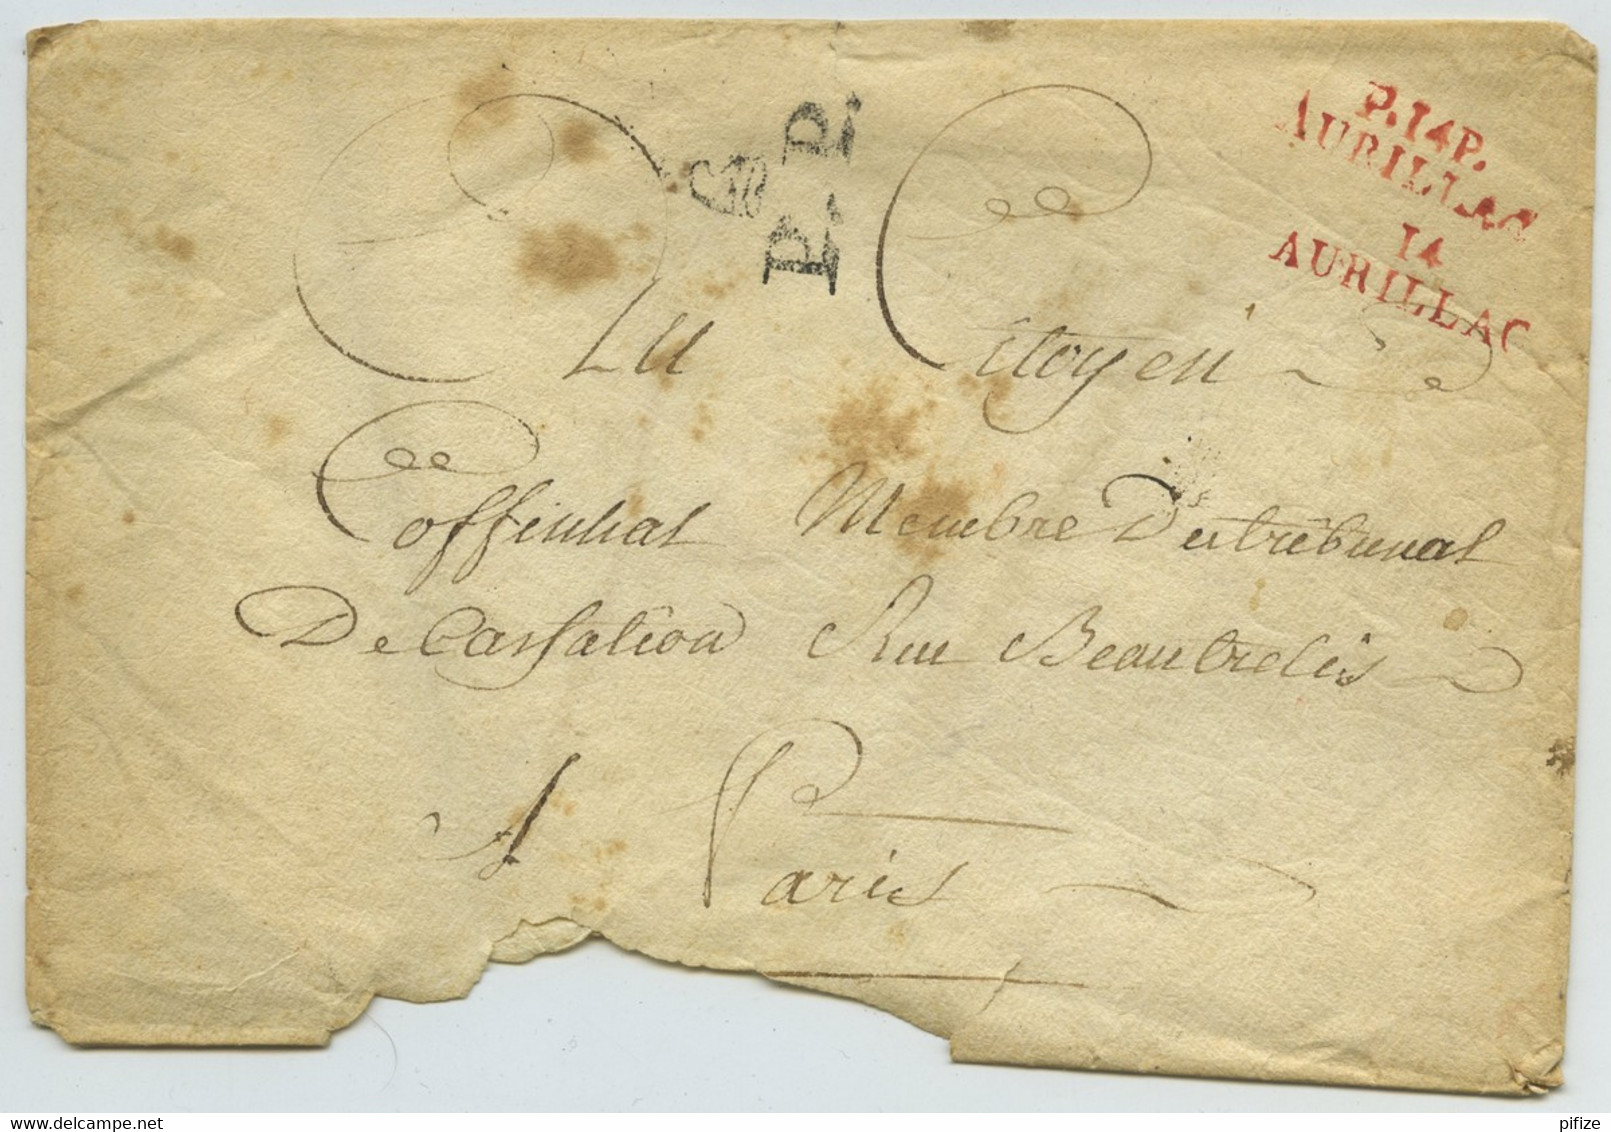 P.14P.
AURILLAC
14
AURILLAC
P.P.
Au Citoyen
Coffinhal Membre Du tribunal
De Cassation Rue Beautrelis
A Paris
pifize